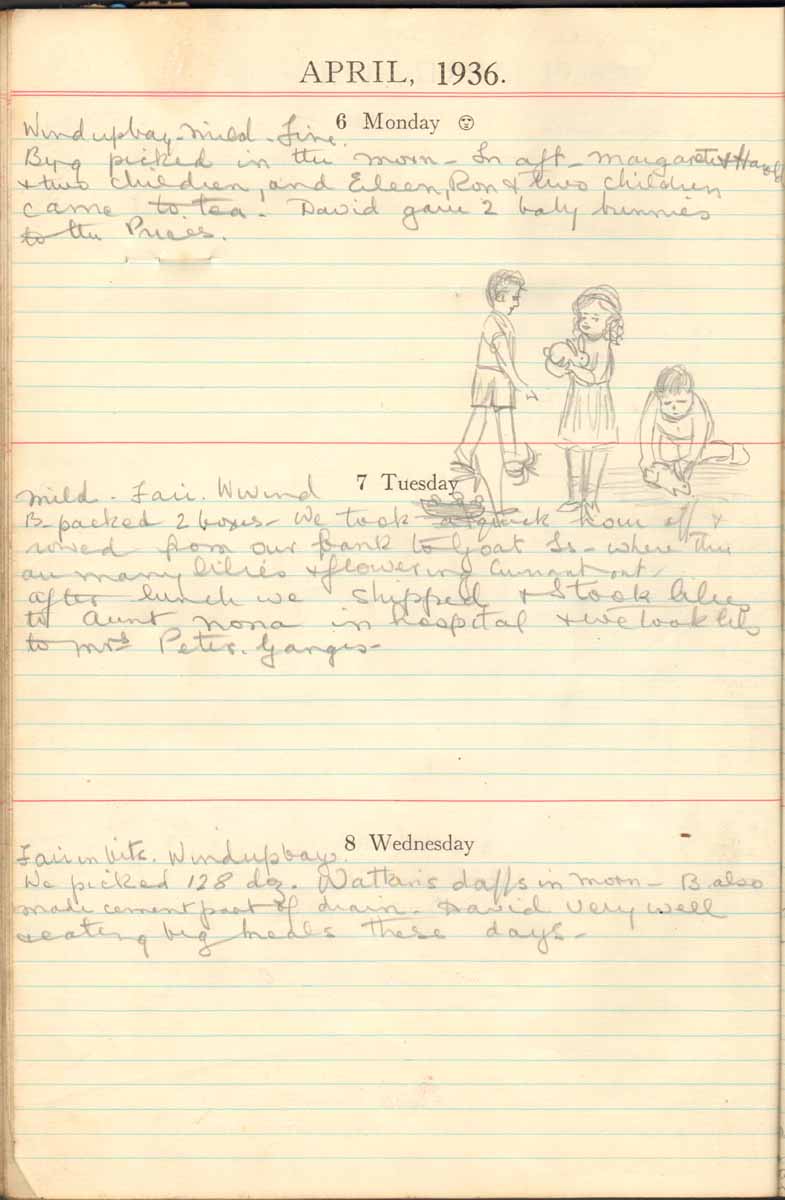 APRIL, 1936.
6 Monday
Wind up bay - Mild - Fine.
B & g picked in the morn - In aft - Margaret & Harold
& two children, and Eileen, Ron & two children
came to tea. David gave 2 baby bunnies
to the Prices.
7 Tuesday
Mild. Fair. W wind
B. packed 2 boxes - We took a quick hour off &
rowed from our bank to Goat Is - where there
are many lilies & flowering currant out.
After lunch we shipped & took lilies
to Aunt Nona in hospital & we took lilies
to Mrs Peter. Ganges -
8 Wednesday
Fair in bits. Wind up bay.
We picked 128 doz. Watkins daffs in morn - B also
made cement part of drain. David very well
& eating big meals these days -